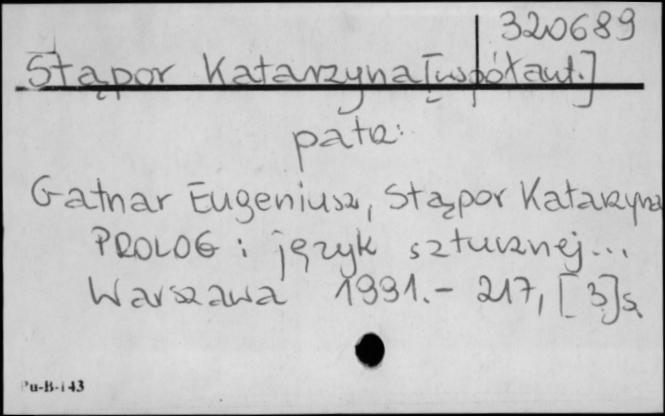 320689
Stąpor Katarzyna [współaut.]
patrz:
Gatnar Eugeniusz, Stąpor Katarzyna
PROLOG : język sztucznej...
Warszawa 1991.- 217, [3]s.
Pu-B-143